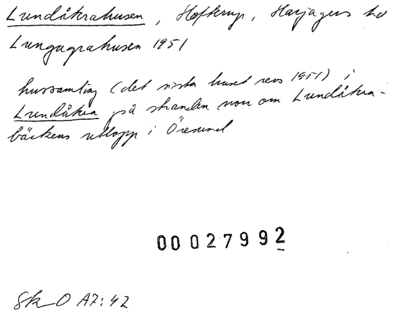 Lundåkrahusen, Hofterup, Harjagers hd
Lungagrahusen 1951
hussamling (det sista huset revs 1951) i
Lundåkra på stranden norr om Lundåkra-
bäckens utlopp i Öresund
00027992
SkO A7:42